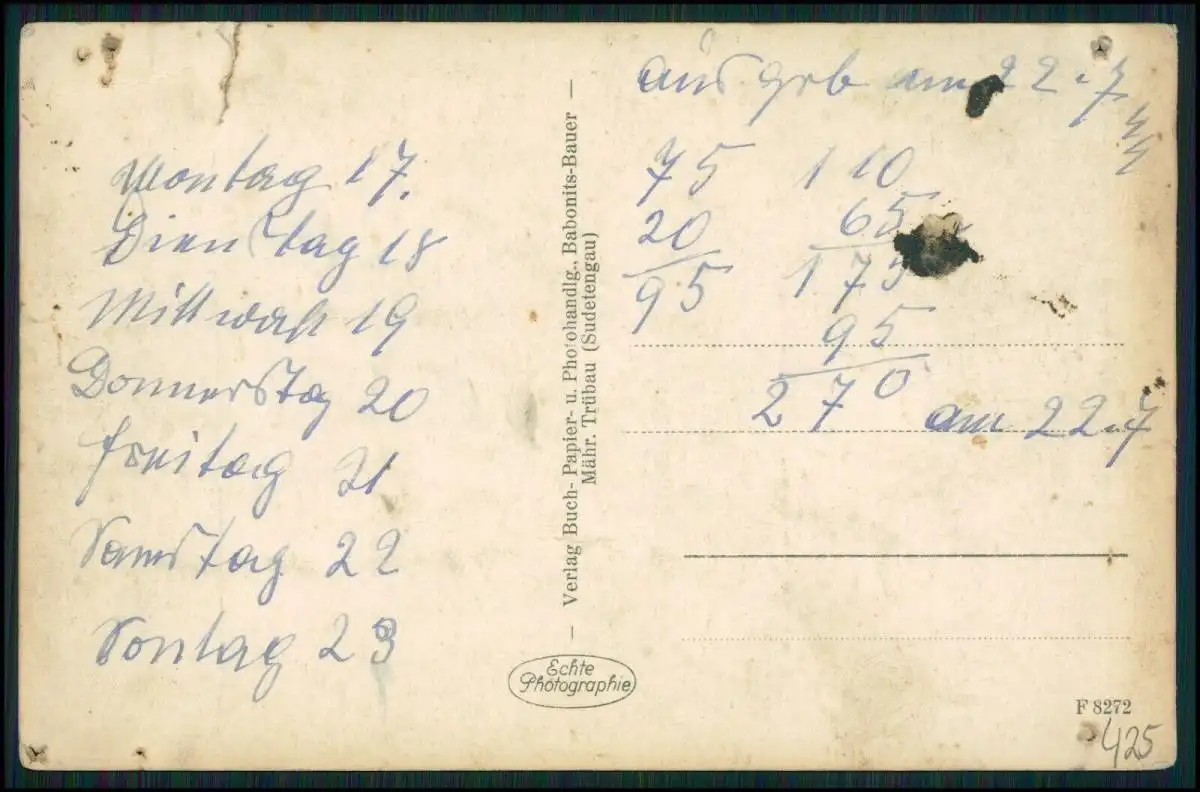 Montag 17.
Dienstag 18
Mittwoch 19
Donnerstag 20
Freitag 21
Samstag 22
Sontag 23
— Verlag Buch- Papier- u. Photohandlg., Babonits-Bauer —
Mähr. Trübau (Sudetengau)
Echte
Photographie
ausgeb am 22.7
44
75
20
95
110
65
175
95
270
am 22.7
F 8272
425